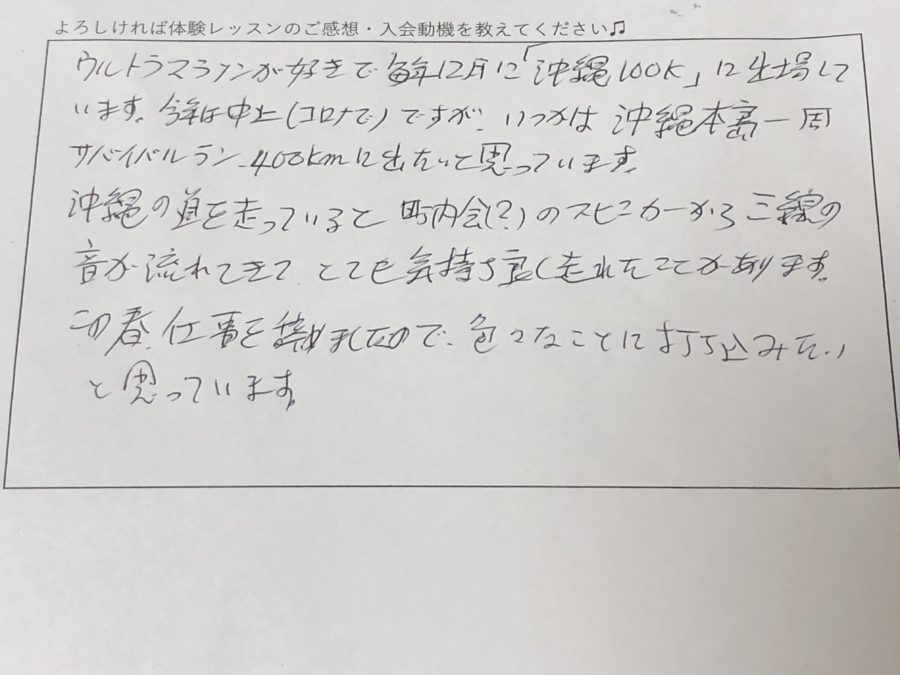 よろしければ体験レッスンのご感想・入会動機を教えてください♫
ウルトラマラソンが好きで毎年12月に「沖縄100K」に出場して
います。今年は中止(コロナで)ですが、いつかは沖縄本島一周
サバイバルラン400kmに出たいと思っています。
沖縄の道を走っていると町内会(?)のスピーカーから三線の
音が流れてきてとても気持ち良く走れたことがあります。
この春、仕事を辞めましたので、色々なことに打ち込みたい
と思っています。